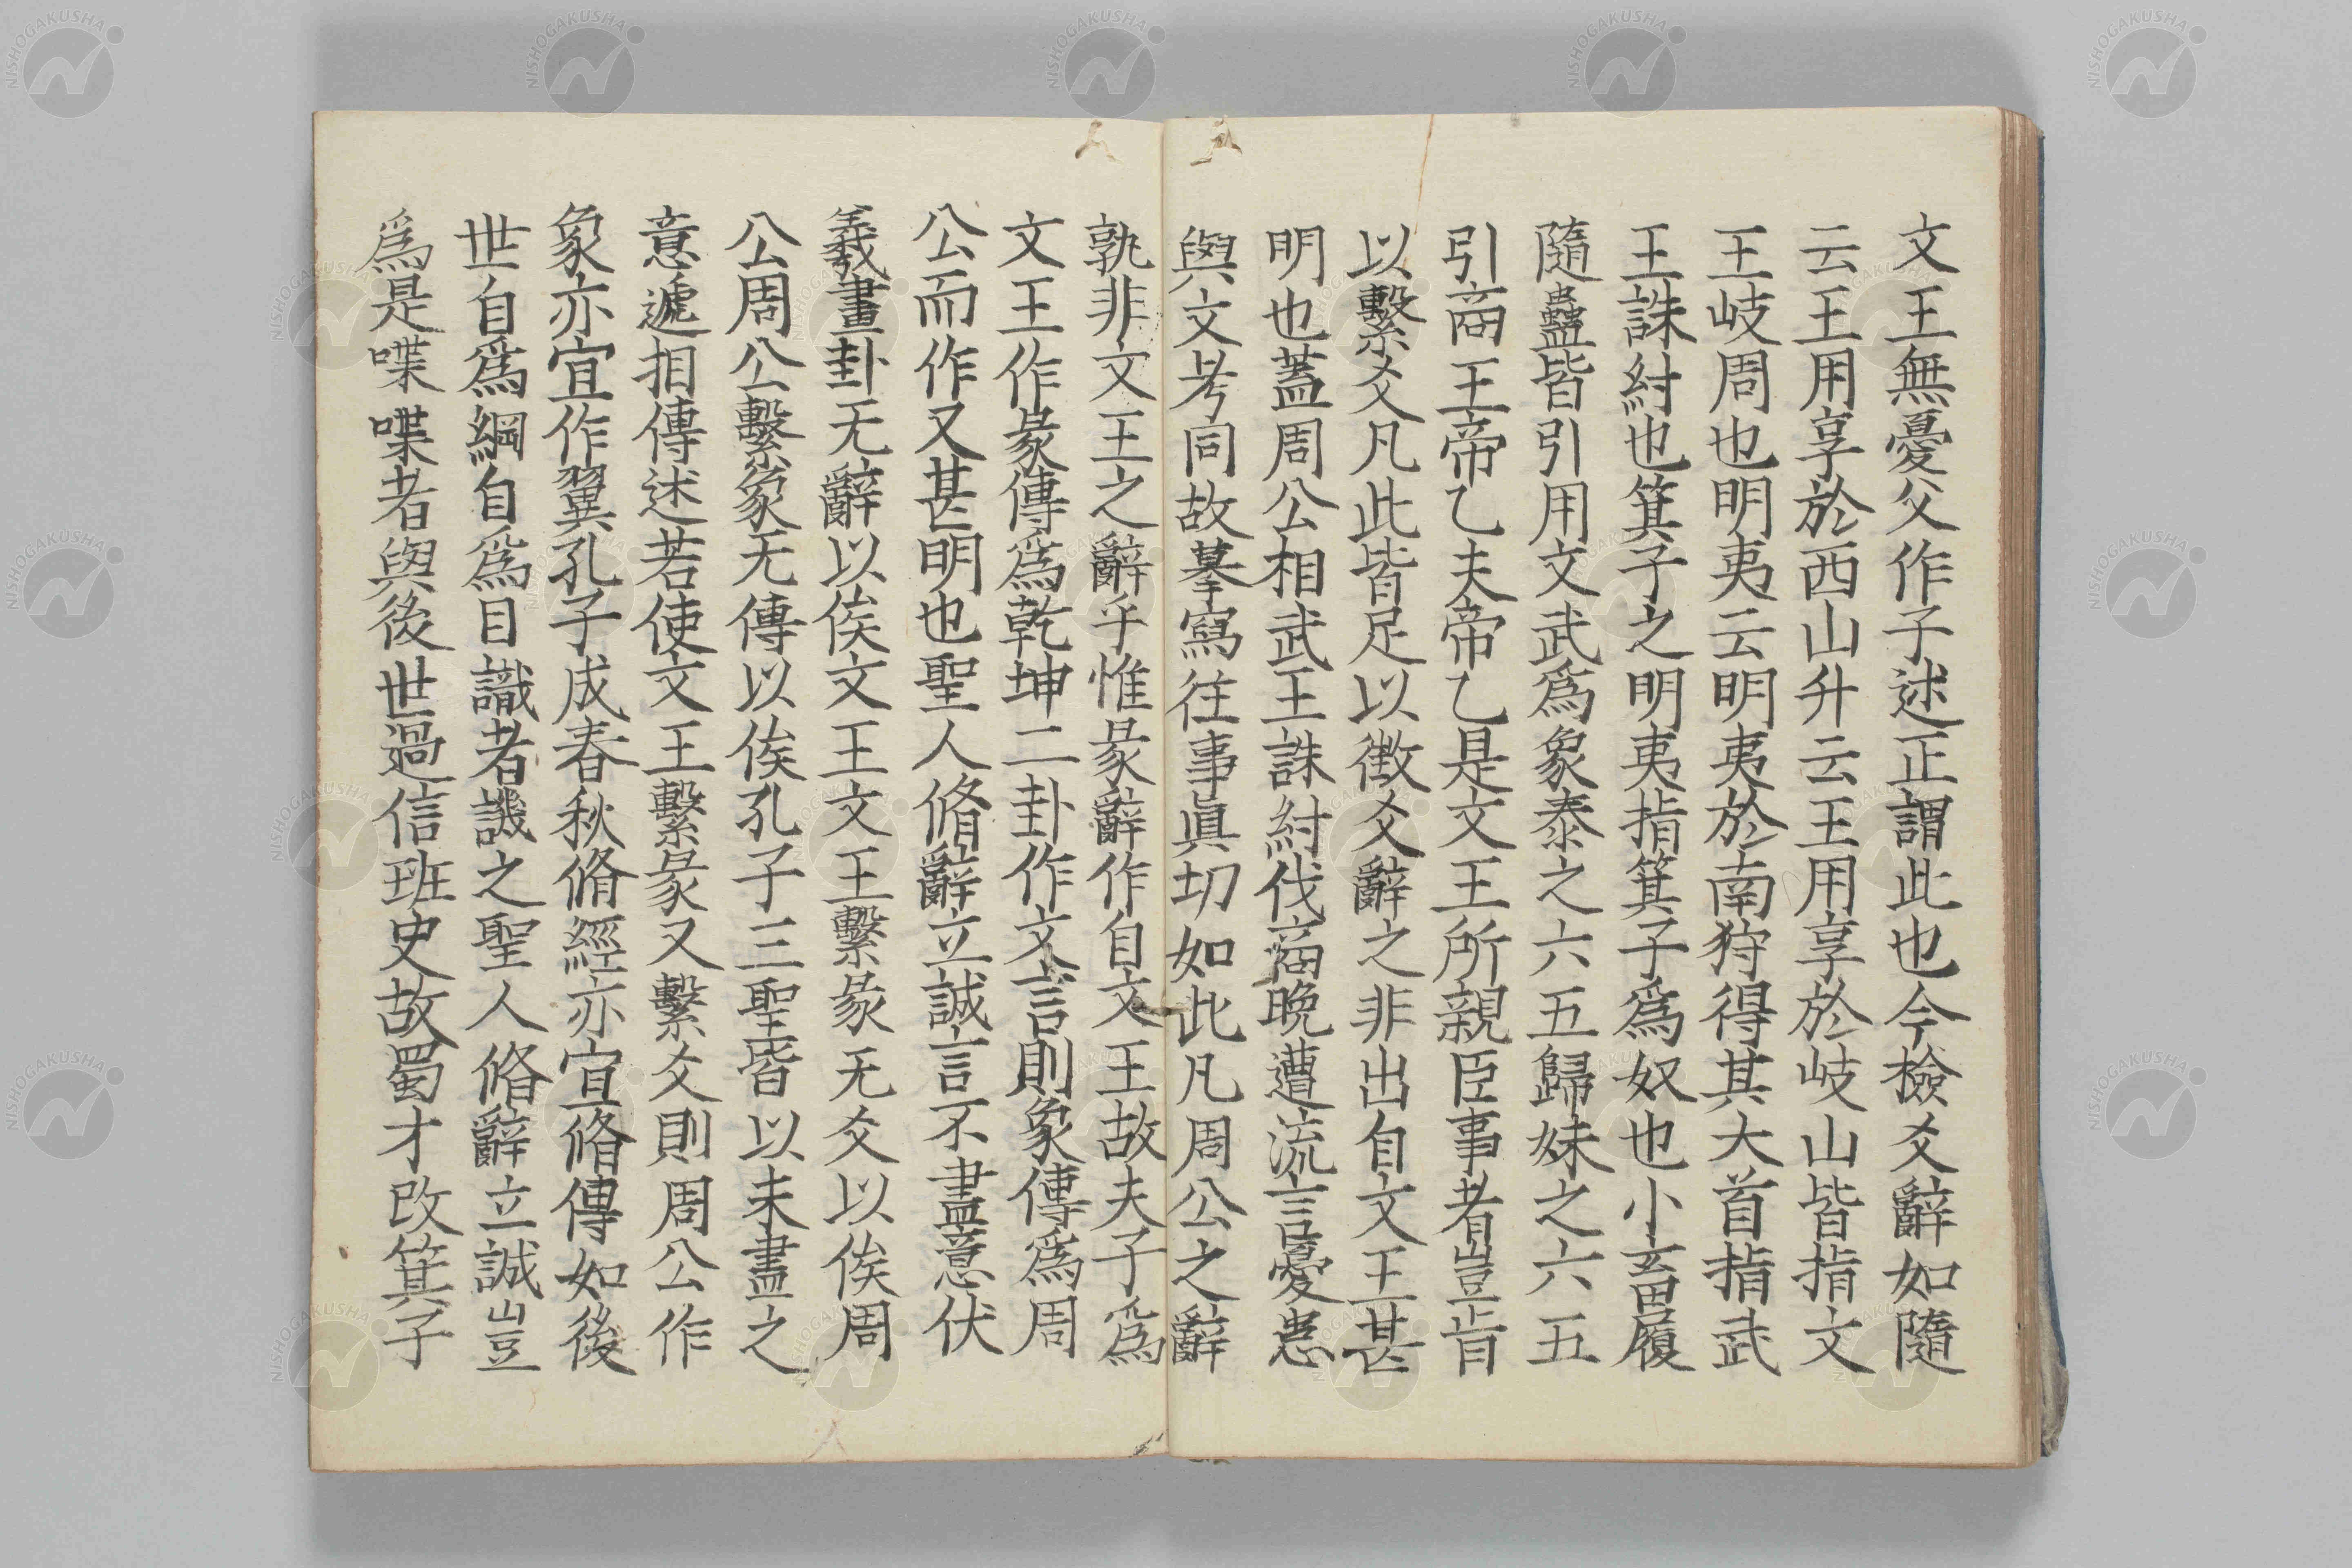 文王無憂父作子述正謂此也今檢爻辭如隨
云王用享於西山升云王用享於岐山皆指文
王岐周也明夷云明夷於南狩得其大首指武
王誅紂也箕子之明夷指箕子爲奴也小畜履
隨蠱皆引用文武爲象泰之六五歸妹之六五
引商王帝乙夫帝乙是文王所親臣事者豈肯
以繫爻凡此皆足以徵爻辭之非出自文王甚
明也蓋周公相武王誅紂伐商晩遭流言憂患
與文考同故摹寫往事眞切如此凡周公之辭
孰非文王之辭乎惟彖辭作自文王故夫子爲
文王作彖傳爲乾坤二卦作文言則象傳爲周
公而作又甚明也聖人脩辭立誠言不盡意伏
羲畫卦无辭以俟文王文王繫彖无爻以俟周
公周公繫象无傳以俟孔子三聖皆以未盡之
意遞相傳述若使文王繫彖又繫爻則周公作
象亦宜作翼孔子成春秋脩經亦宜脩傳如後
世自爲綱自爲目識者譏之聖人脩辭立誠豈
爲是喋喋者與後世過信班史故蜀才改箕子
NISHOGAKUSHA